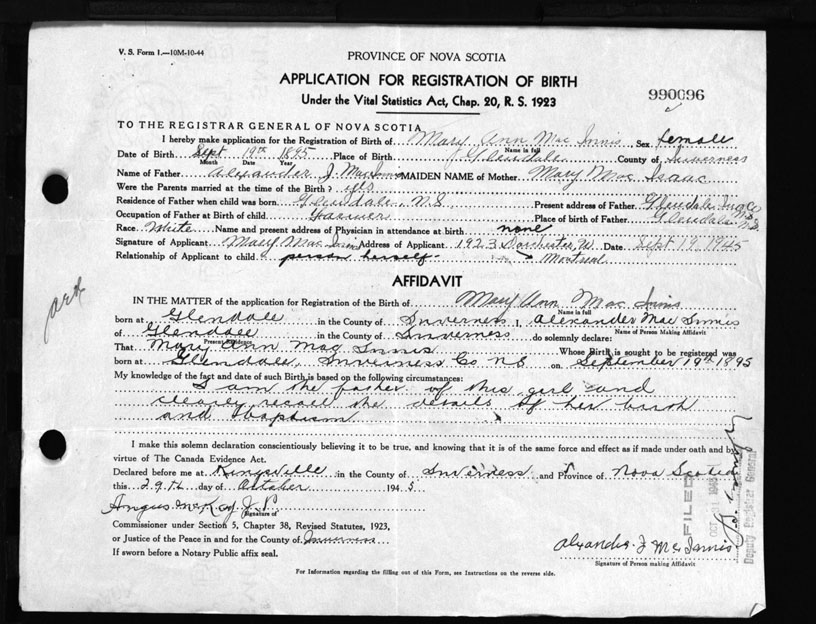 V. S. Form 1.—10M-10-44
PROVINCE OF NOVA SCOTIA
APPLICATION FOR REGISTRATION OF BIRTH
Under the Vital Statistics Act, Chap. 20, R. S. 1923
990096
TO THE REGISTRAR GENERAL OF NOVA SCOTIA
I hereby make application for the Registration of Birth of Mary Ann Mac Innis Sex female
Name in full
Date of Birth Sept 19th 1895 Place of Birth Glendale County of Inverness
Month Date Year
Name of Father Alexander J. MacInnis MAIDEN NAME of Mother Mary Mac Isaac
Were the Parents married at the time of the Birth? yes
Residence of Father when child was born Glendale, N.S. Present address of Father Glendale Inv. Co N.S.
Occupation of Father at Birth of child Farmer Place of birth of Father Glendale N.S.
Race White Name and present address of Physician in attendance at birth none
Signature of Applicant Mary MacInnis Address of Applicant 1923 Dorchester W. Date Sept 19 1945
Relationship of Applicant to child person herself Montreal
AFFIDAVIT
IN THE MATTER of the application for Registration of the Birth of Mary Ann Mac Innis
Name in full
born at Glendale in the County of Inverness I, Alexander Mac Innis
Name of Person Making Affidavit
of Glendale in the County of Inverness do solemnly declare:
Present Residence
That Mary Ann Mac Innis Whose Birth is sought to be registered was
born at Glendale, Inverness Co N.S. on September 19th 1895
My knowledge of the fact and date of such Birth is based on the following circumstances:
I am the father of this girl and
clearly recall the details of her birth
and Baptism
I make this solemn declaration conscientiously believing it to be true, and knowing that it is of the same force and effect as if made under oath and by
virtue of The Canada Evidence Act.
Declared before me at Kingsville in the County of Inverness and Province of Nova Scotia
this 29th day of October 1945
Angus McKay J.P.
Signature of
Commissioner under Section 5, Chapter 38, Revised Statutes, 1923,
or Justice of the Peace in and for the County of Inverness
If sworn before a Notary Public affix seal.
Alexander J McInnis
Signature of Person making Affidavit
For Information regarding the filling out of this Form, see Instructions on the reverse side.
FILED
OCT 31
Deputy Registrar General